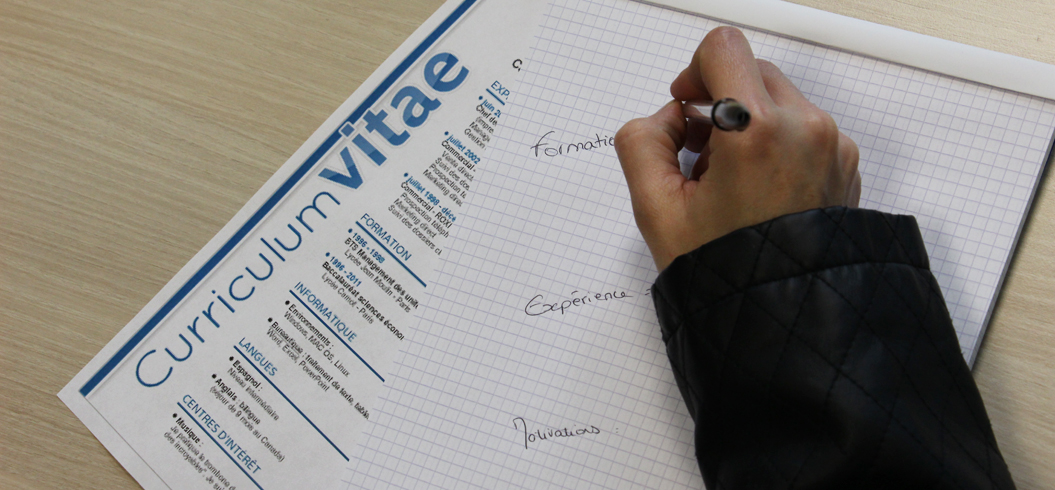 Curriculum vitae
juillet 2002
Commercial -
Suivi des
Prospection
Marketing
juillet 1998 - déce
Commercial - ROXI
Prospection téléph
Marketing direct
Suivi des dossiers cl
FORMATION
1996 - 1998
BTS Management des unit
Lycée Jean Moulin - Paris
1996 - 2011
Baccalauréat sciences économ
Lycée Carnot - Paris
INFORMATIQUE
Environnements :
Windows, MAC OS, Linux
Bureautique : traitement de texte, table
Word, Excel, PowerPoint
LANGUES
Espagnol :
Niveau intermédiaire
Anglais : bilingue
(séjour de 9 mois au Canada)
CENTRES D'INTÉRÊT
Musique :
Je pratique le trombone d
Formatio
Expérience =
Motivations